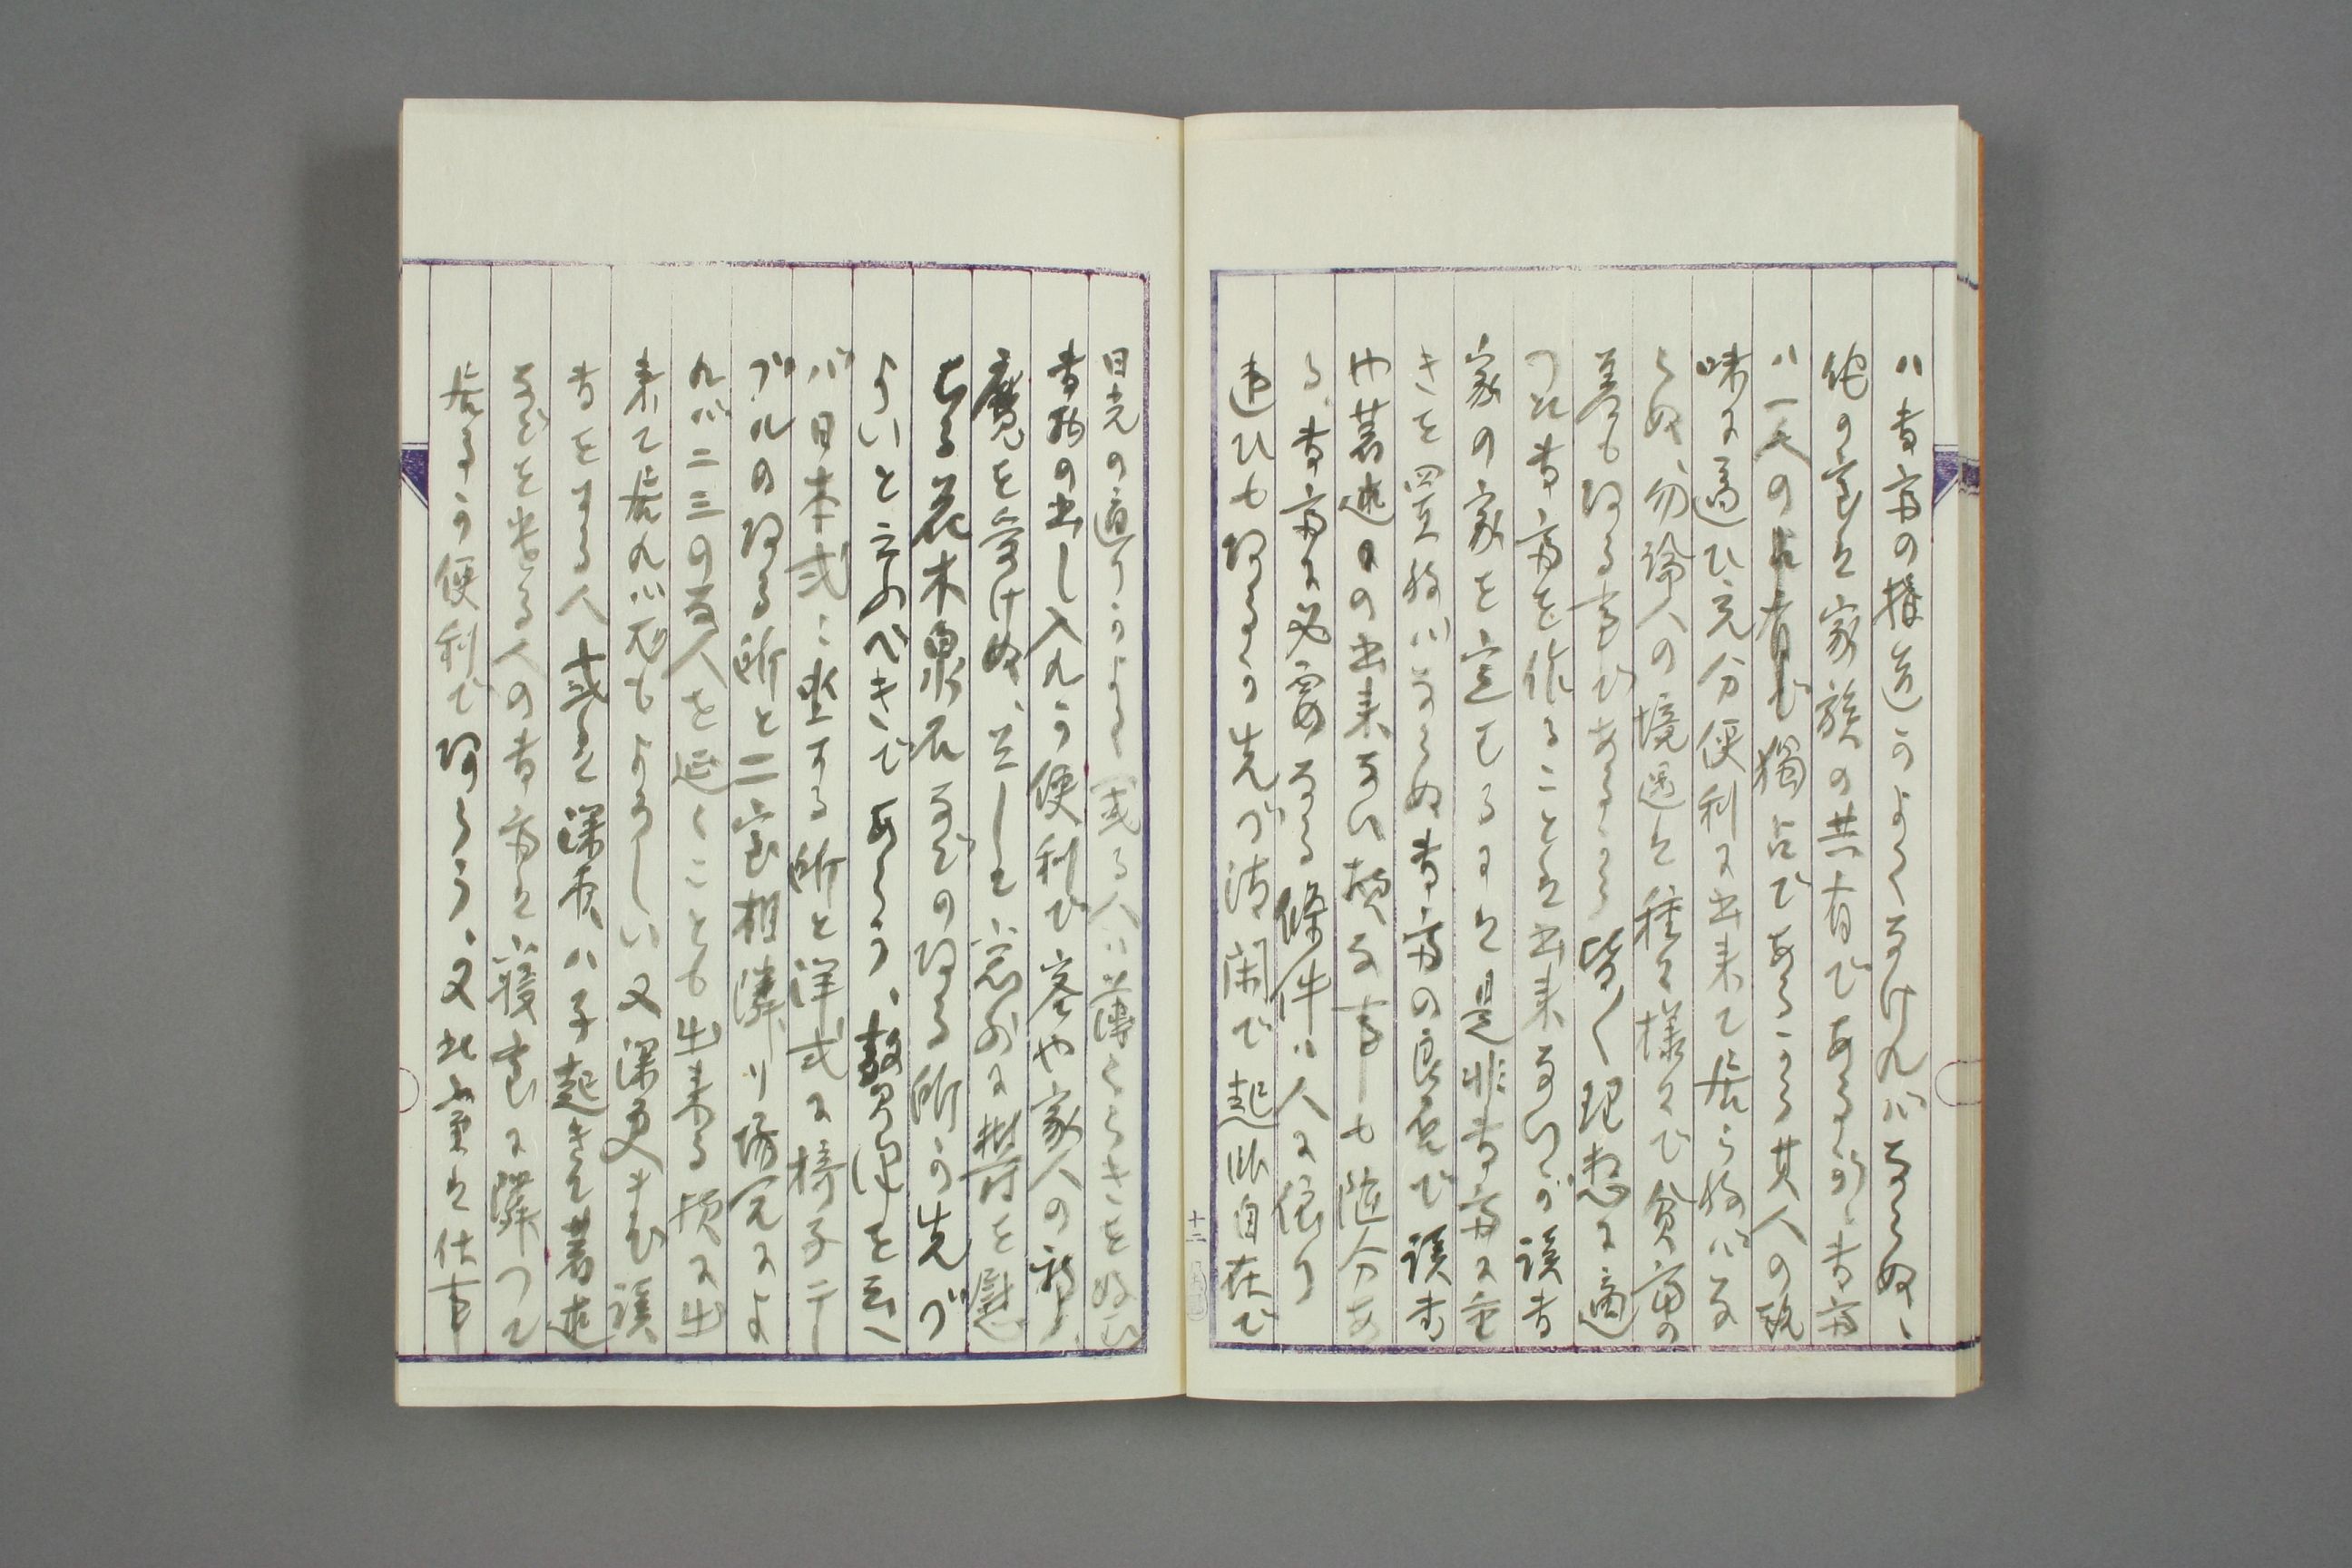 ハ書斎の構造のよくなければならぬ、
他の室は家族の共有であるが書斎
ハ一人の占有で獨占であるから其人の趣
味に適ひ充分便利に出来て居らねばな
らぬ、勿論人の境遇は種々様々で貧富の
差もある事であるから皆々理想に適
つた書斎を作ることは出来ないが讀書
家の家を定むるには是非書斎に重
きを置ねばならぬ書斎の良否で讀書
や著述の出来ない様な事も随分あ
る、書斎に必要なる條件ハ人に依り
違ひもあらうが先づ清閑で起臥自在で
十三
日光の通りのよく或る人ハ薄くらきを好む
書物の出し入れの便利で客や家人の
魔を受けぬ、そして窓外に
花木泉石などのある所が先づ
よいと云ふべきであらう、贅沢を云へ
バ日本式に坐する所と洋式に椅子テー
ブルのある所と二室相隣り場合によ
れバ二三の友人を延くことも出来る様に出
来て居れバ尤もよろしい又深更まで讀
書をする人或は深夜ハ子起きて著述
などをする人の書斎は寝室に隣つて
居る方便利であらう、又此室は仕事